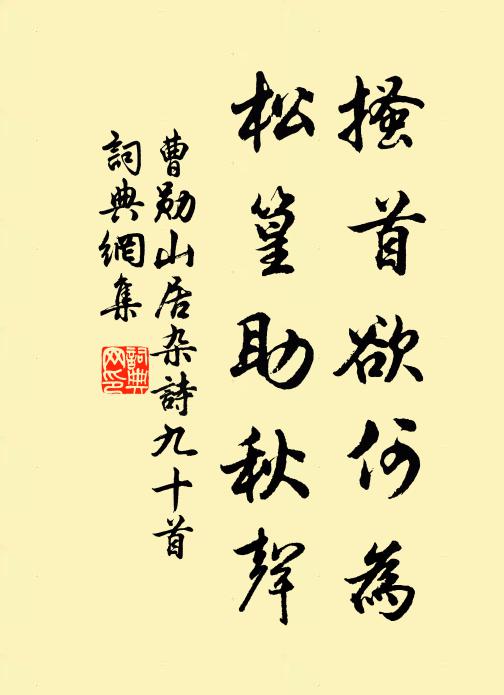 搔首欲何為
松篁助秋聲
曹勛山居杂詩九十首
詞典網集
詞典網印